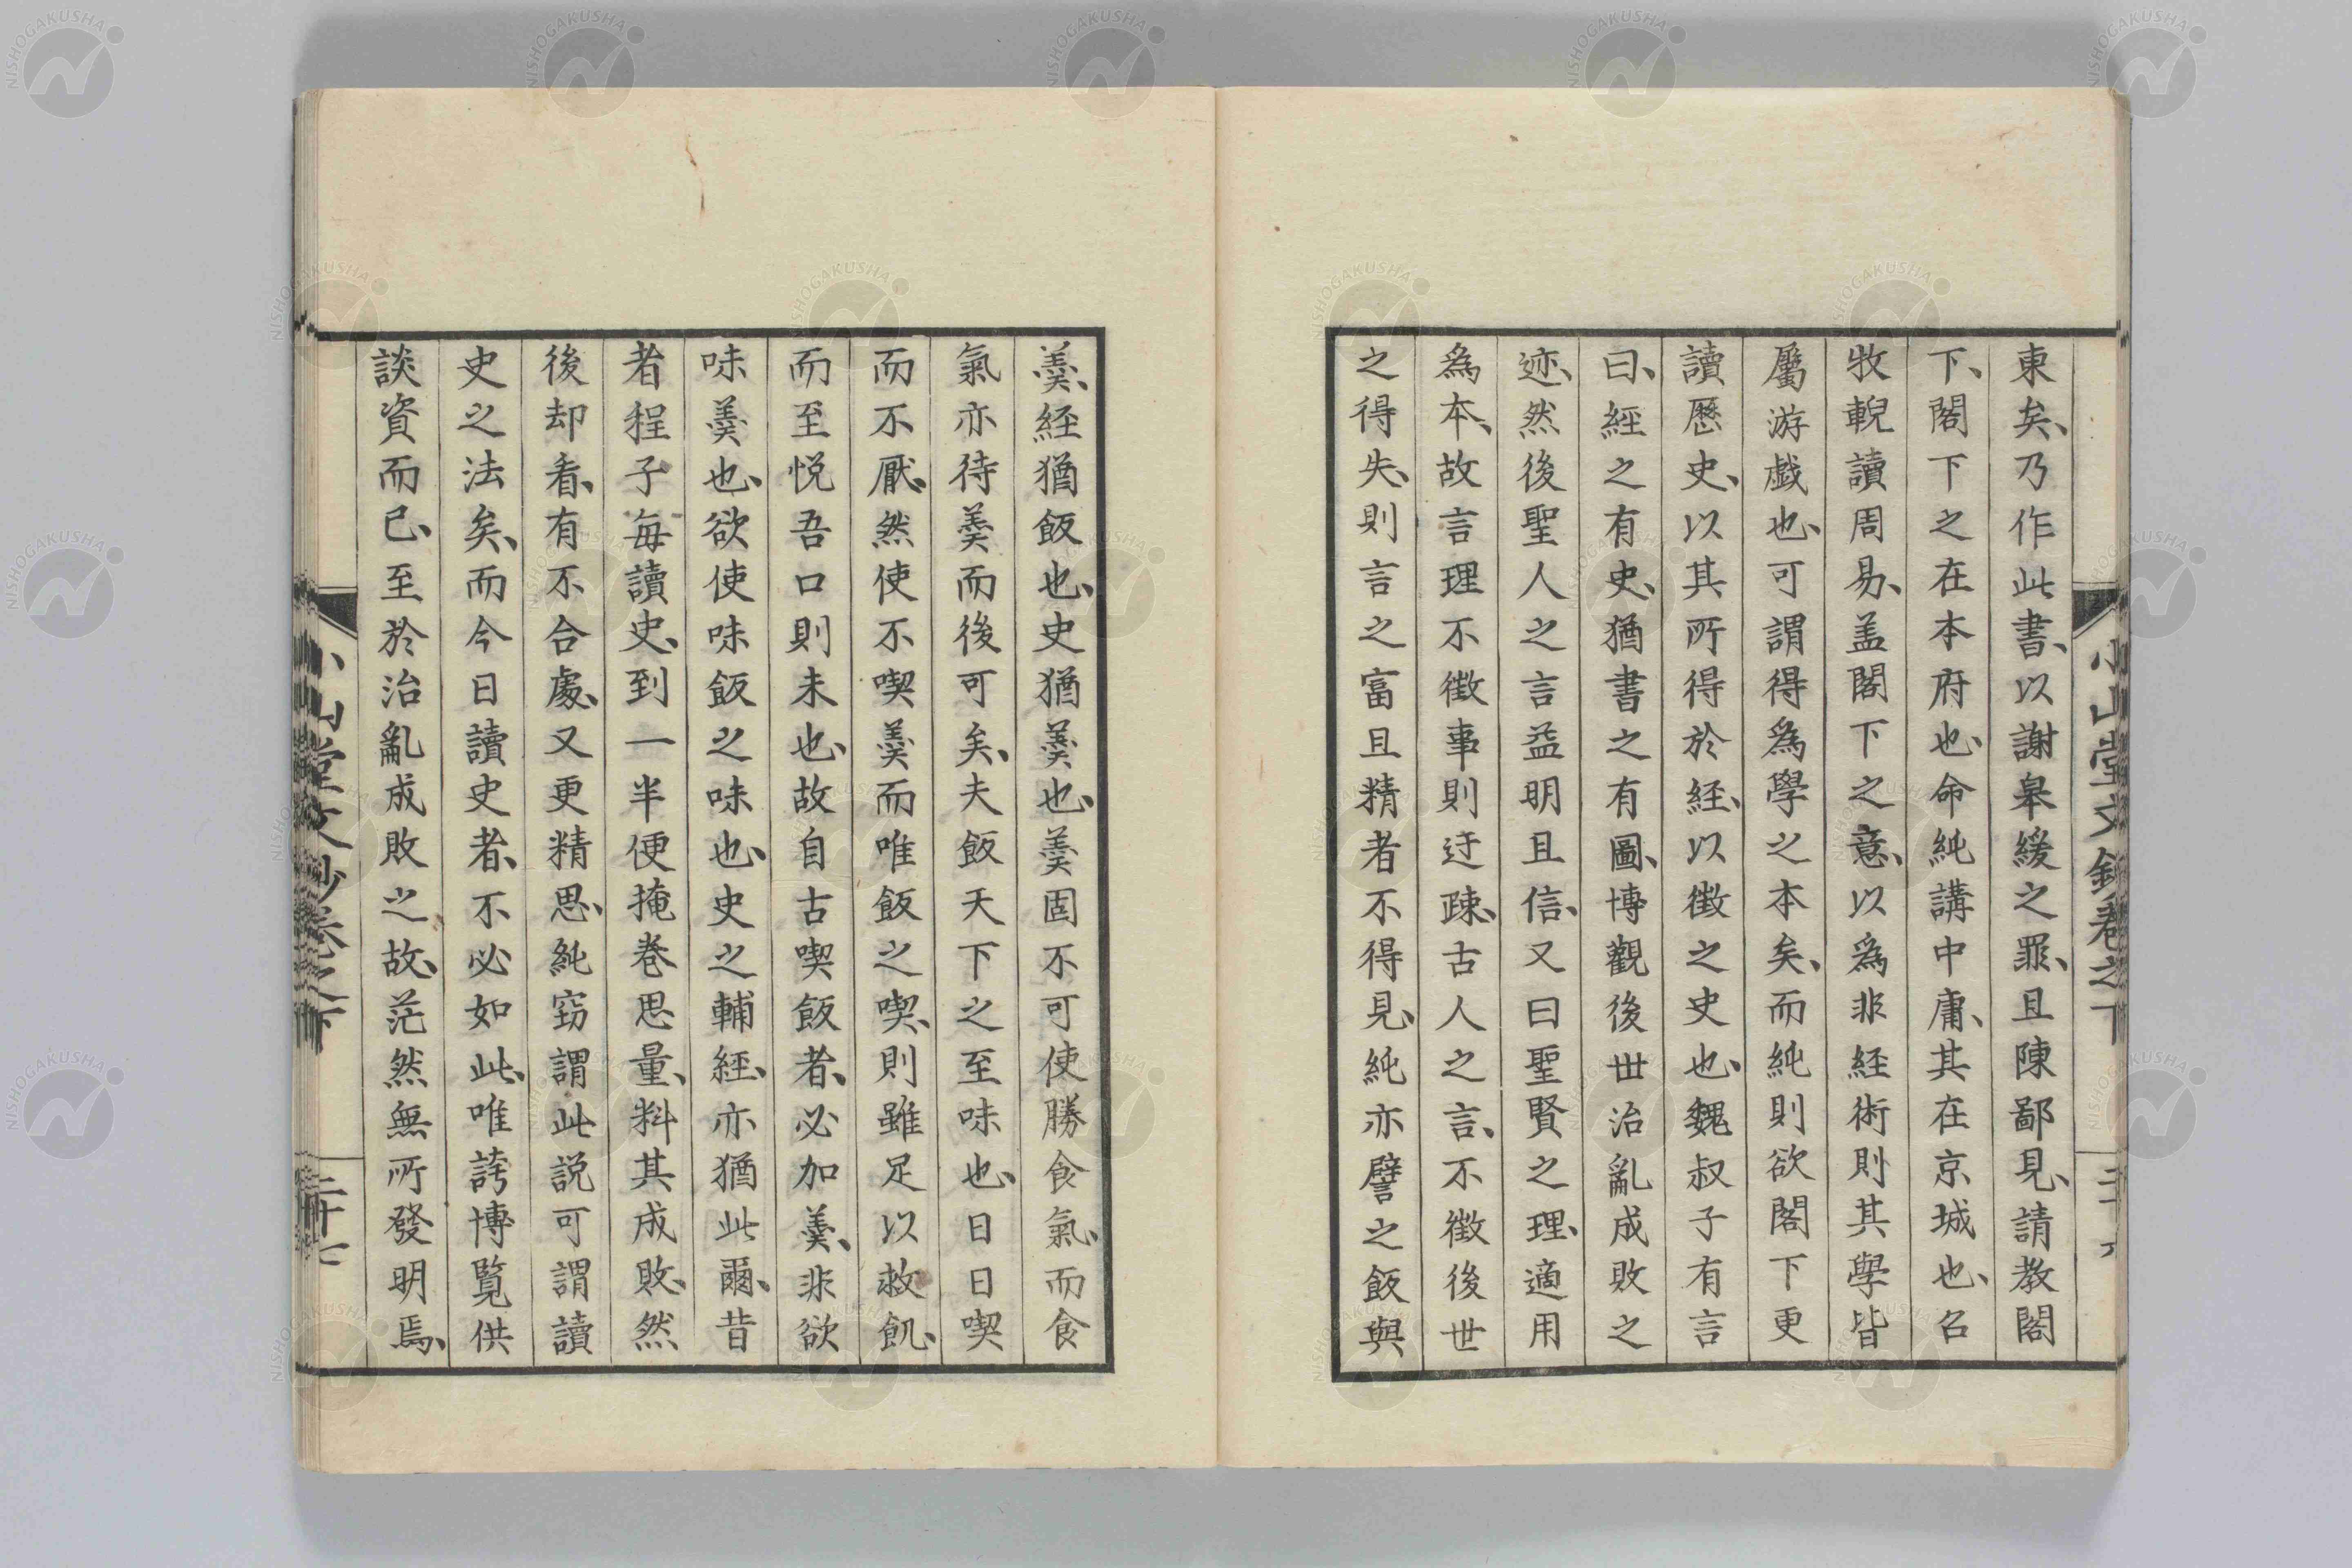 東矣、乃作此書、以謝皐緩之罪、且陳鄙見、請教閣
下、閣下之在本府也、命純講中庸、其在京城也、召
牧輗讀周易、盖閣下之意、以為非経術則其學皆
屬游戯也、可謂得為學之本矣、而純則欲閣下更
讀歴史、以其所得於経、以徴之史也、魏叔子有言
曰、経之有史、猶書之有圖、博觀後世治亂成敗之
迹、然後聖人之言益明且信、又曰聖賢之理、適用
為本、故言理不徴事則迂疎、古人之言、不徴後世
之得失、則言之富且精者不得見、純亦譬之飯與
羹、経猶飯也、史猶羹也、羹固不可使勝食氣、而食
氣亦待羹而後可矣、夫飯天下之至味也、日日喫
而不厭、然使不喫羹而唯飯之喫、則雖足以救飢、
而至悦吾口則未也、故自古喫飯者、必加羹、非欲
味羹也、欲使味飯之味也、史之輔経、亦猶此爾、昔
者程子毎讀史、到一半便掩巻思量、料其成敗、然
後却看、有不合處、又更精思、純窃謂此説可謂讀
史之法矣、而今日讀史者、不必如此、唯誇博覧供
談資而已、至於治亂成敗之故、茫然無所發明焉、
小山堂文鈔巻之下
二十七
NISHOGAKUSHA